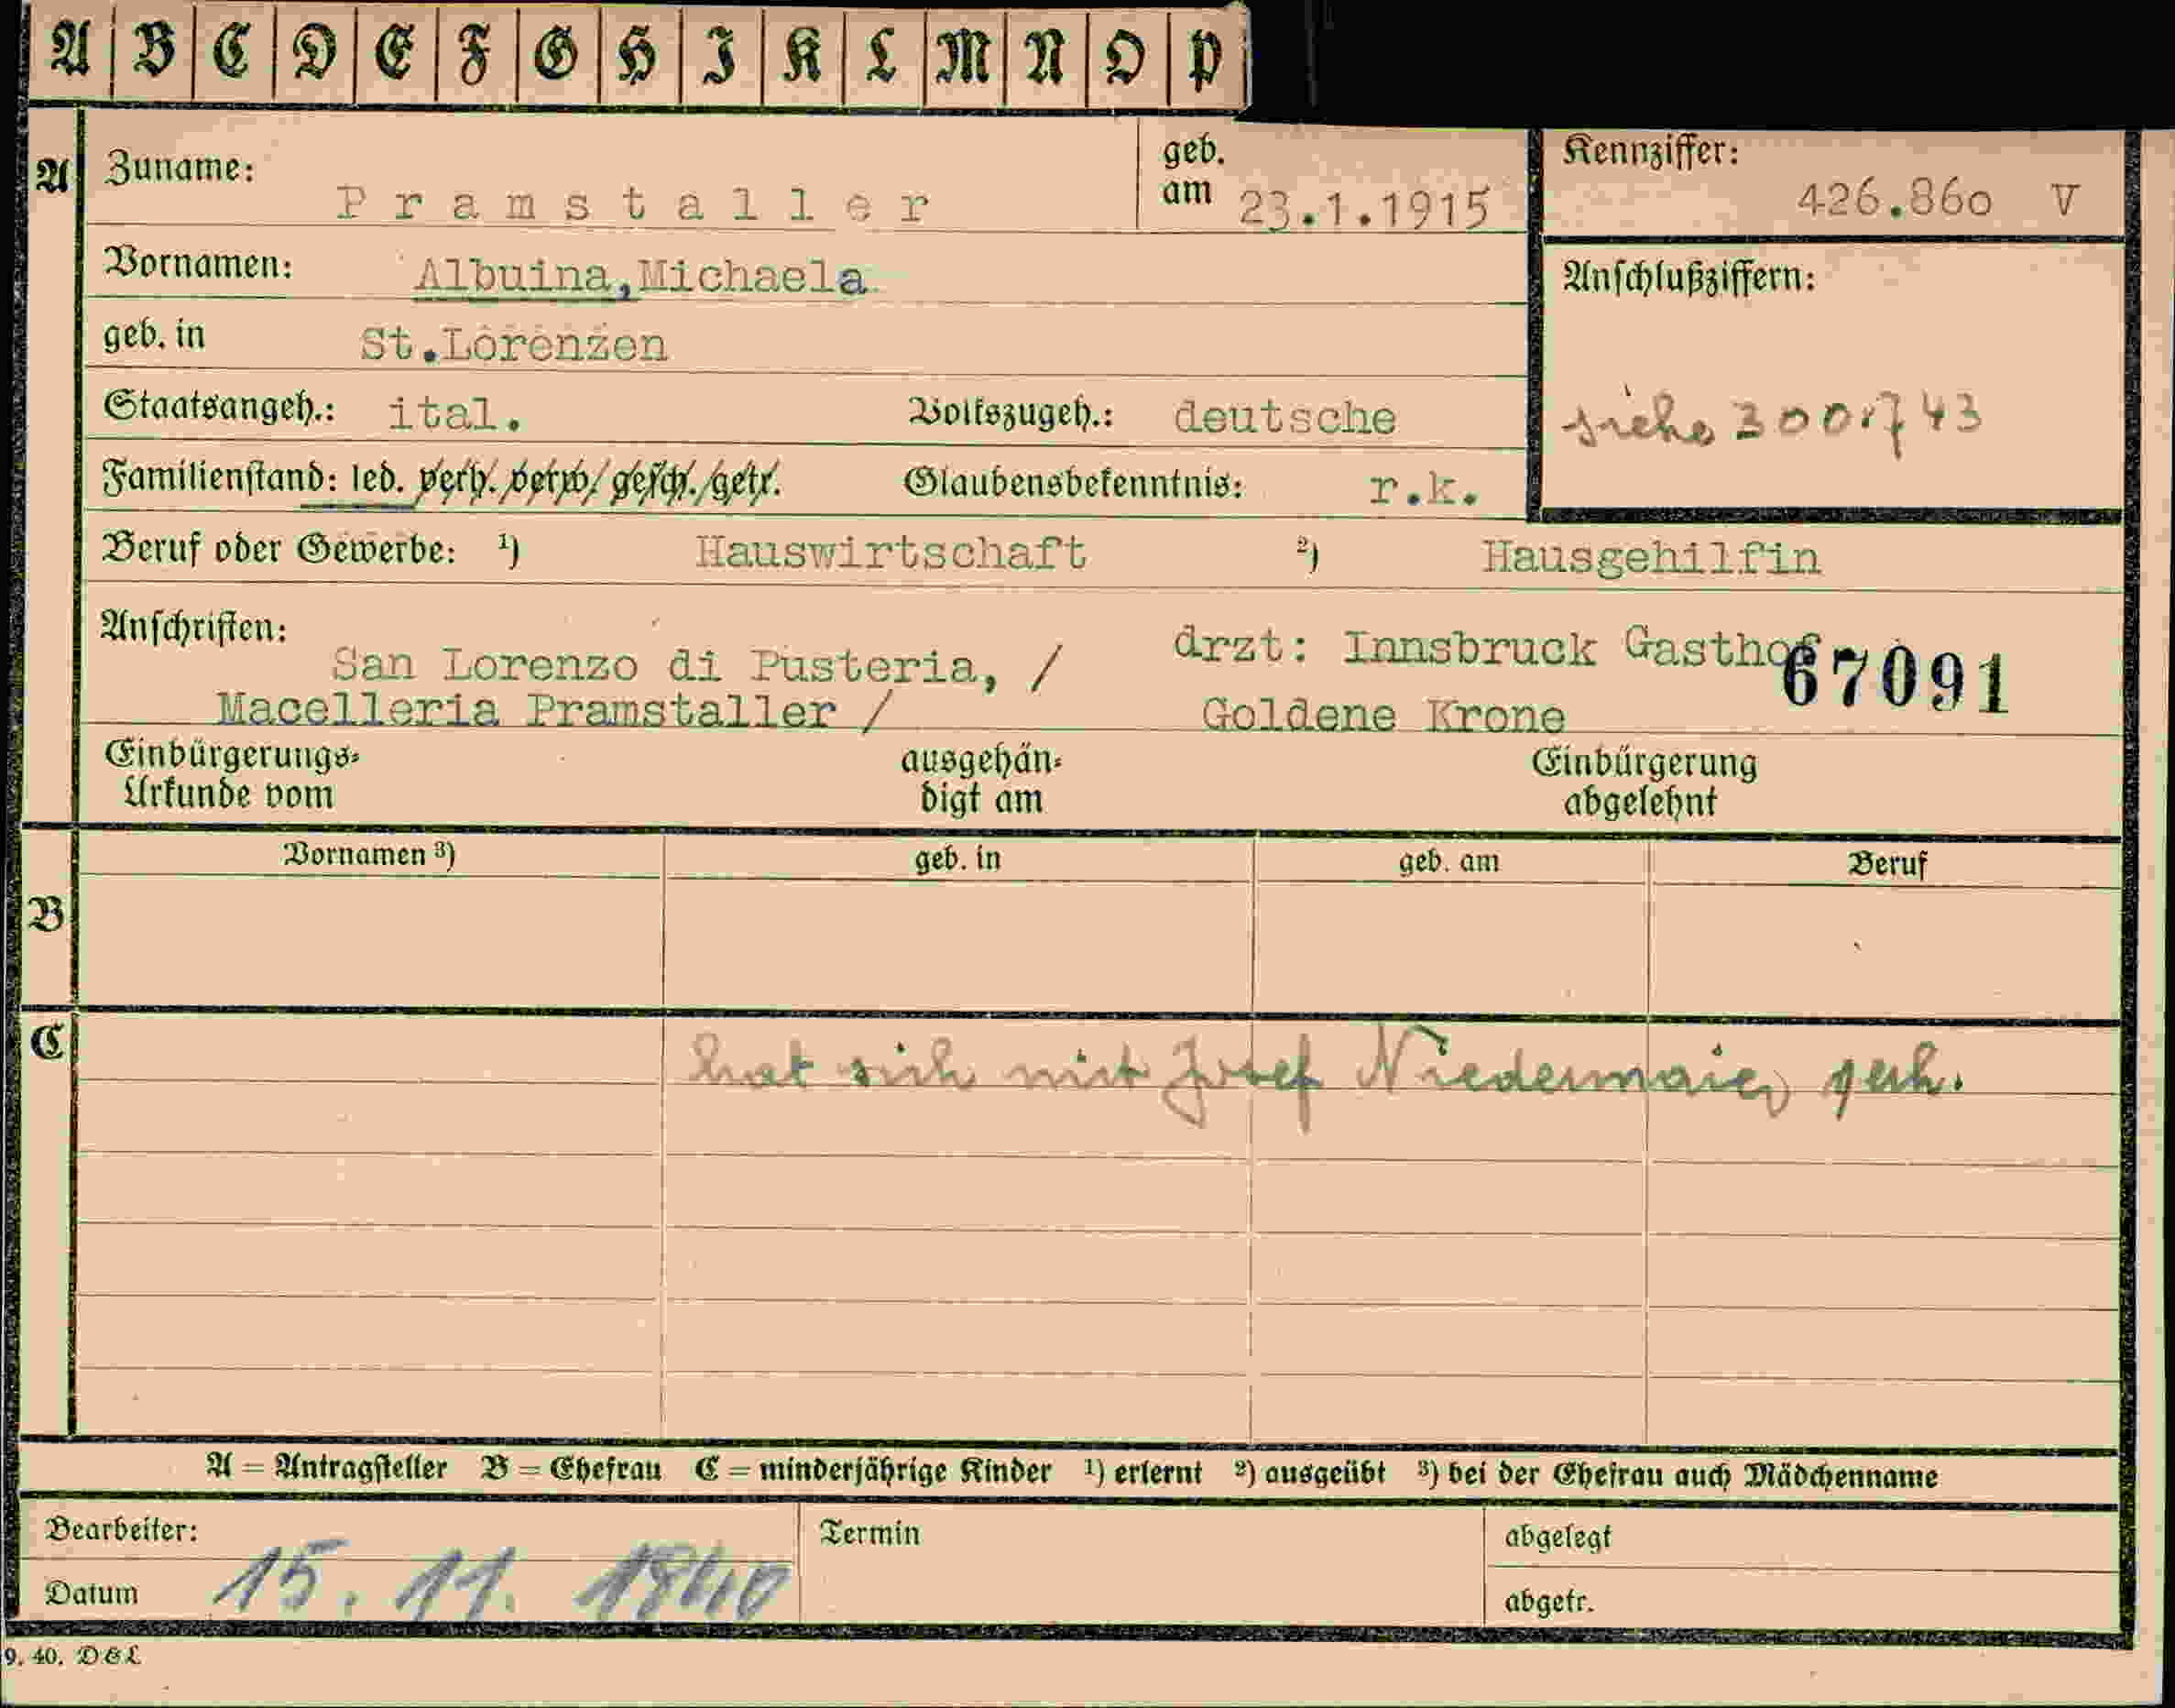 A B C D E F G H I K L M N O P
A
Zuname: Pramstaller
geb. am 23.1.1915
Kennziffer: 426.860 V
Vornamen: Albuina,Michaela
Anschlußziffern:
geb. in St.Lorenzen
siehe 300.743
Staatsangeh.: ital. Volkszugeh.: deutsche
Familienstand: led. verh./verw./gesch./getr. Glaubensbekenntnis: r.k.
Beruf oder Gewerbe: ¹) Hauswirtschaft ²) Hausgehilfin
Anschriften: San Lorenzo di Pusteria, /
Macelleria Pramstaller /
drzt: Innsbruck Gasthof
Goldene Krone
67091
Einbürgerungs-
Urkunde vom
ausgehän-
digt am
Einbürgerung
abgelehnt
B
Vornamen ³) geb. in geb. am Beruf
C
hat sich mit Josef Niedermaier
A = Antragsteller B = Ehefrau C = minderjährige Kinder ¹) erlernt ²) ausgeübt ³) bei der Ehefrau auch Mädchenname
Bearbeiter:
Termin
abgelegt
Datum 15. 11. 1940
abgetr.
9. 40. D&L